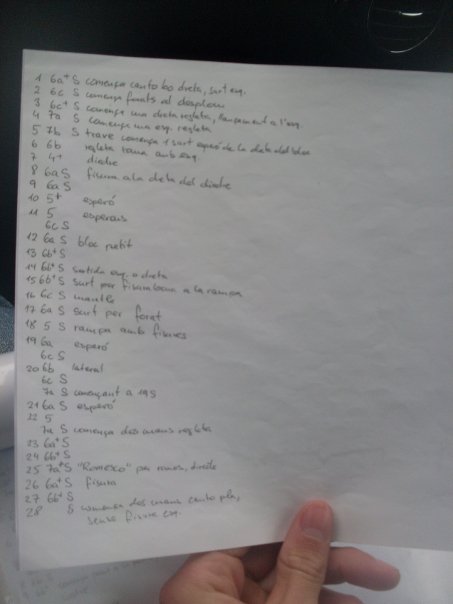 1 6a+ S comença canto bo dreta, surt esq.
2 6c S comença forats al desplom
3 6c+ S comença ma dreta regleta, llançament a l'esq.
4 7a S comença ma esq. regleta
5 7b S trave comença i surt esperó de la dreta del bloc
6 6b regleta roma amb esq.
7 4+ diedre
8 6a S fisura a la dreta del diedre
9 6a S
10 5+ esperó
11 5 esperons
6c S
12 6a S bloc petit
13 6b+ S
14 6b+ S sortida esq. o dreta
15 6b+ S surt per fisura a la rampa
16 6c S mantle
17 6a S surt per forat
18 5 S rampa amb fisures
19 6a esperó
6c S
20 6b lateral
6c S
7a S començant a 19S
21 6a S esperó
22 5
7a S comença dos mans regleta
23 6a+ S
24 6b+ S
25 7a+ S "Romesco" per romos, diedre
26 6a+ S fisura
27 6b+ S
28 S comença dos mans canto pla,
sense fisura esq.